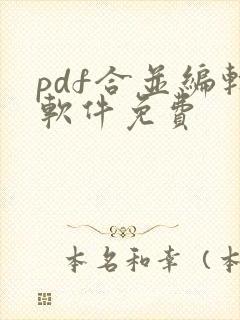 pdf合並編輯
軟件免費
本名和幸（本